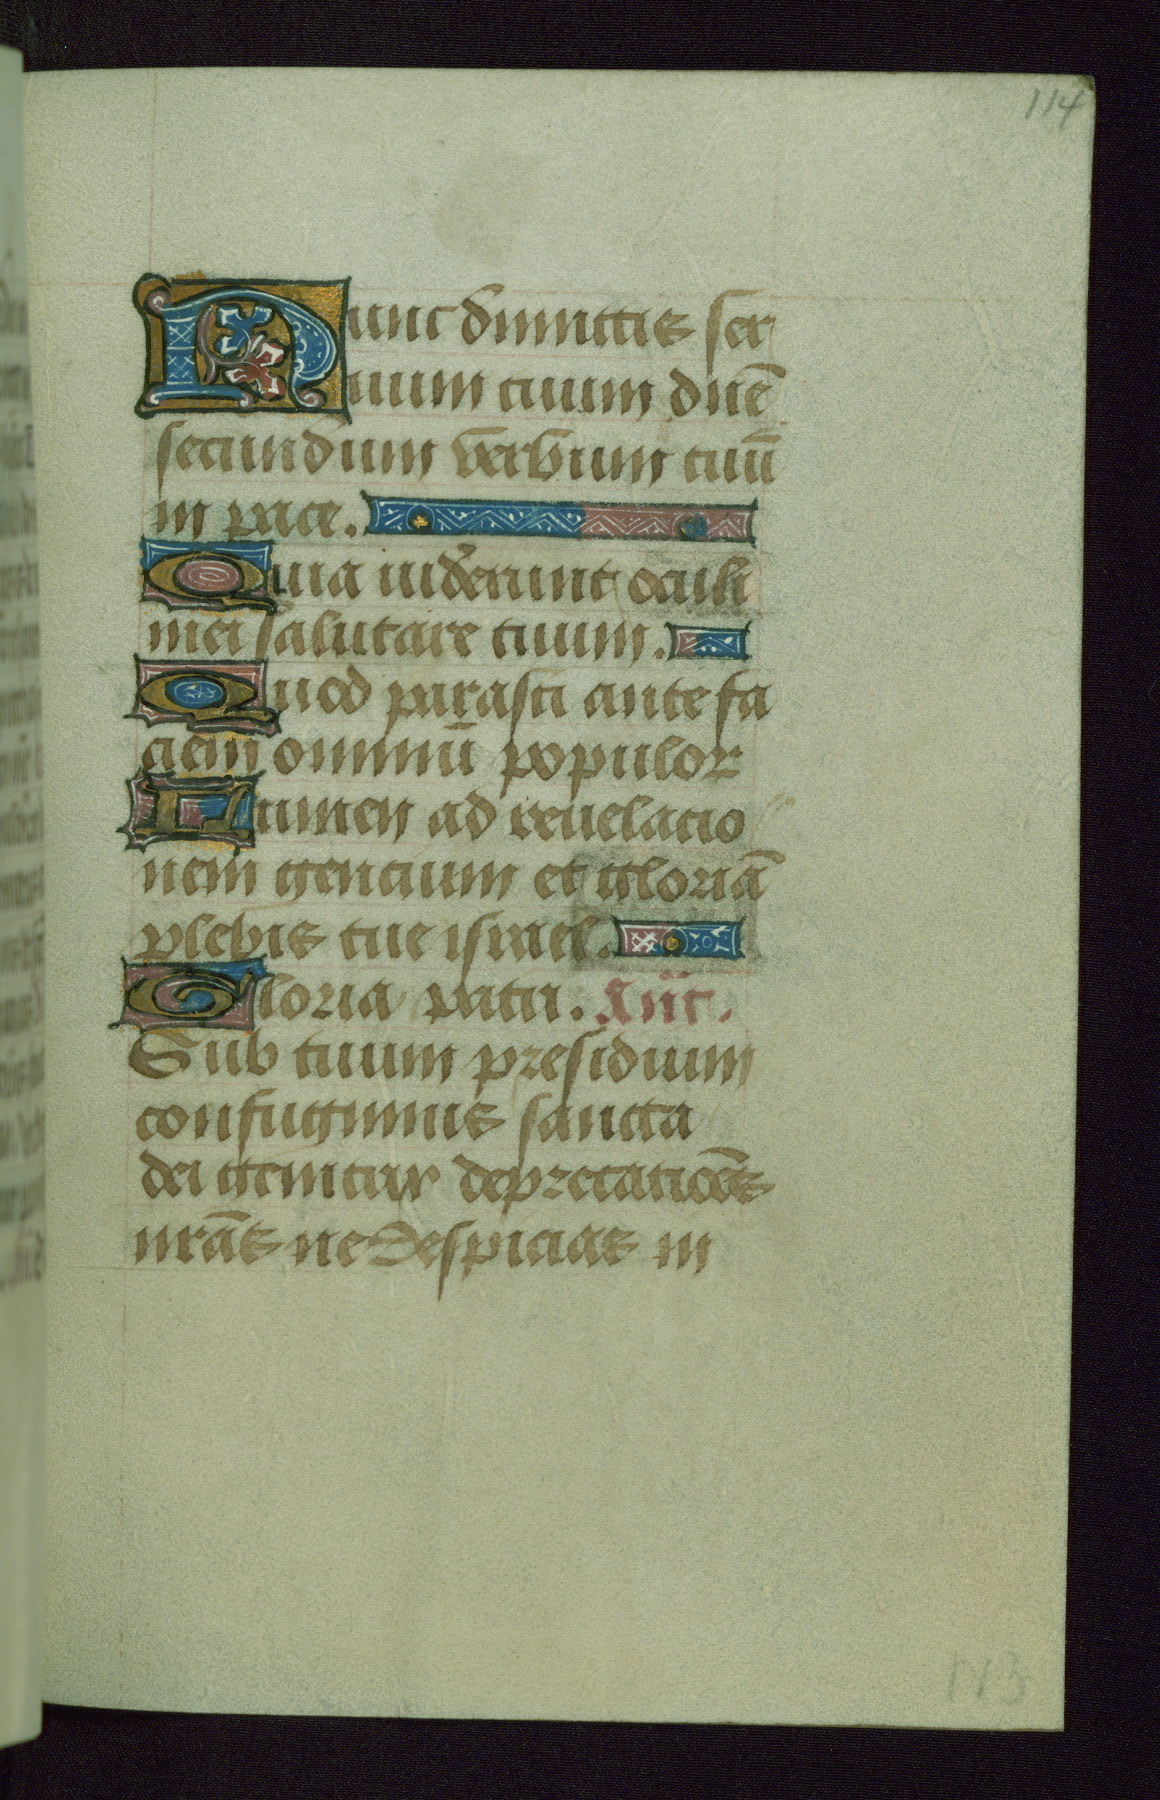 114
Nunc dimittis ser
uum tuum dne̅
secundum verbum tuu̅
in pace.
Quia uiderunt oculi
mei salutare tuum.
Quod parasti ante fa
ciem omniu̅ populor
Lumen ad reuelatio
nem gentium et gloria̅
plebis tue israel.
Gloria patri. An̅t.
Sub tuum presidium
confugimus sancta
dei genitrix deprecatio̅es
nra̅s ne despicias in
113